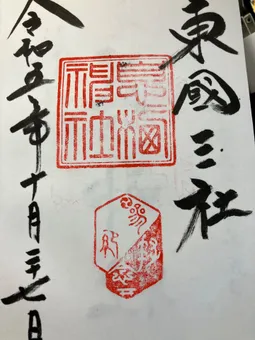 東國三社
息栖
神社
令和五年十月二十七日